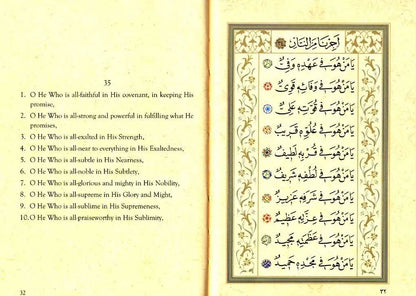 35
1. O He Who is all-faithful in His covenant, in keeping His
promise,
2. O He Who is all-strong and powerful in fulfilling what He
promises,
3. O He Who is all-exalted in His Strength,
4. O He Who is all-near to everything in His Exaltedness,
5. O He Who is all-subtle in His Nearness,
6. O He Who is all-noble in His Subtlety,
7. O He Who is all-glorious and mighty in His Nobility,
8. O He Who is all-supreme in His Glory and Might,
9. O He Who is all-sublime in His Supremeness,
10. O He Who is all-praiseworthy in His Sublimity,
32
اَجِرْنَا مِنَ النَّارِ
يَا مَنْ هُوَ فِي عَهْدِهِ وَفِيٌّ
يَا مَنْ هُوَ فِي وَفَائِهِ قَوِيٌّ
يَا مَنْ هُوَ فِي قُوَّتِهِ عَلِيٌّ
يَا مَنْ هُوَ فِي عُلُوِّهِ قَرِيبٌ
يَا مَنْ هُوَ فِي قُرْبِهِ لَطِيفٌ
يَا مَنْ هُوَ فِي لُطْفِهِ شَرِيفٌ
يَا مَنْ هُوَ فِي شَرَفِهِ عَزِيزٌ
يَا مَنْ هُوَ فِي عِزِّهِ عَظِيمٌ
يَا مَنْ هُوَ فِي عَظَمَتِهِ مَجِيدٌ
يَا مَنْ هُوَ فِي مَجْدِهِ حَمِيدٌ
٣٢